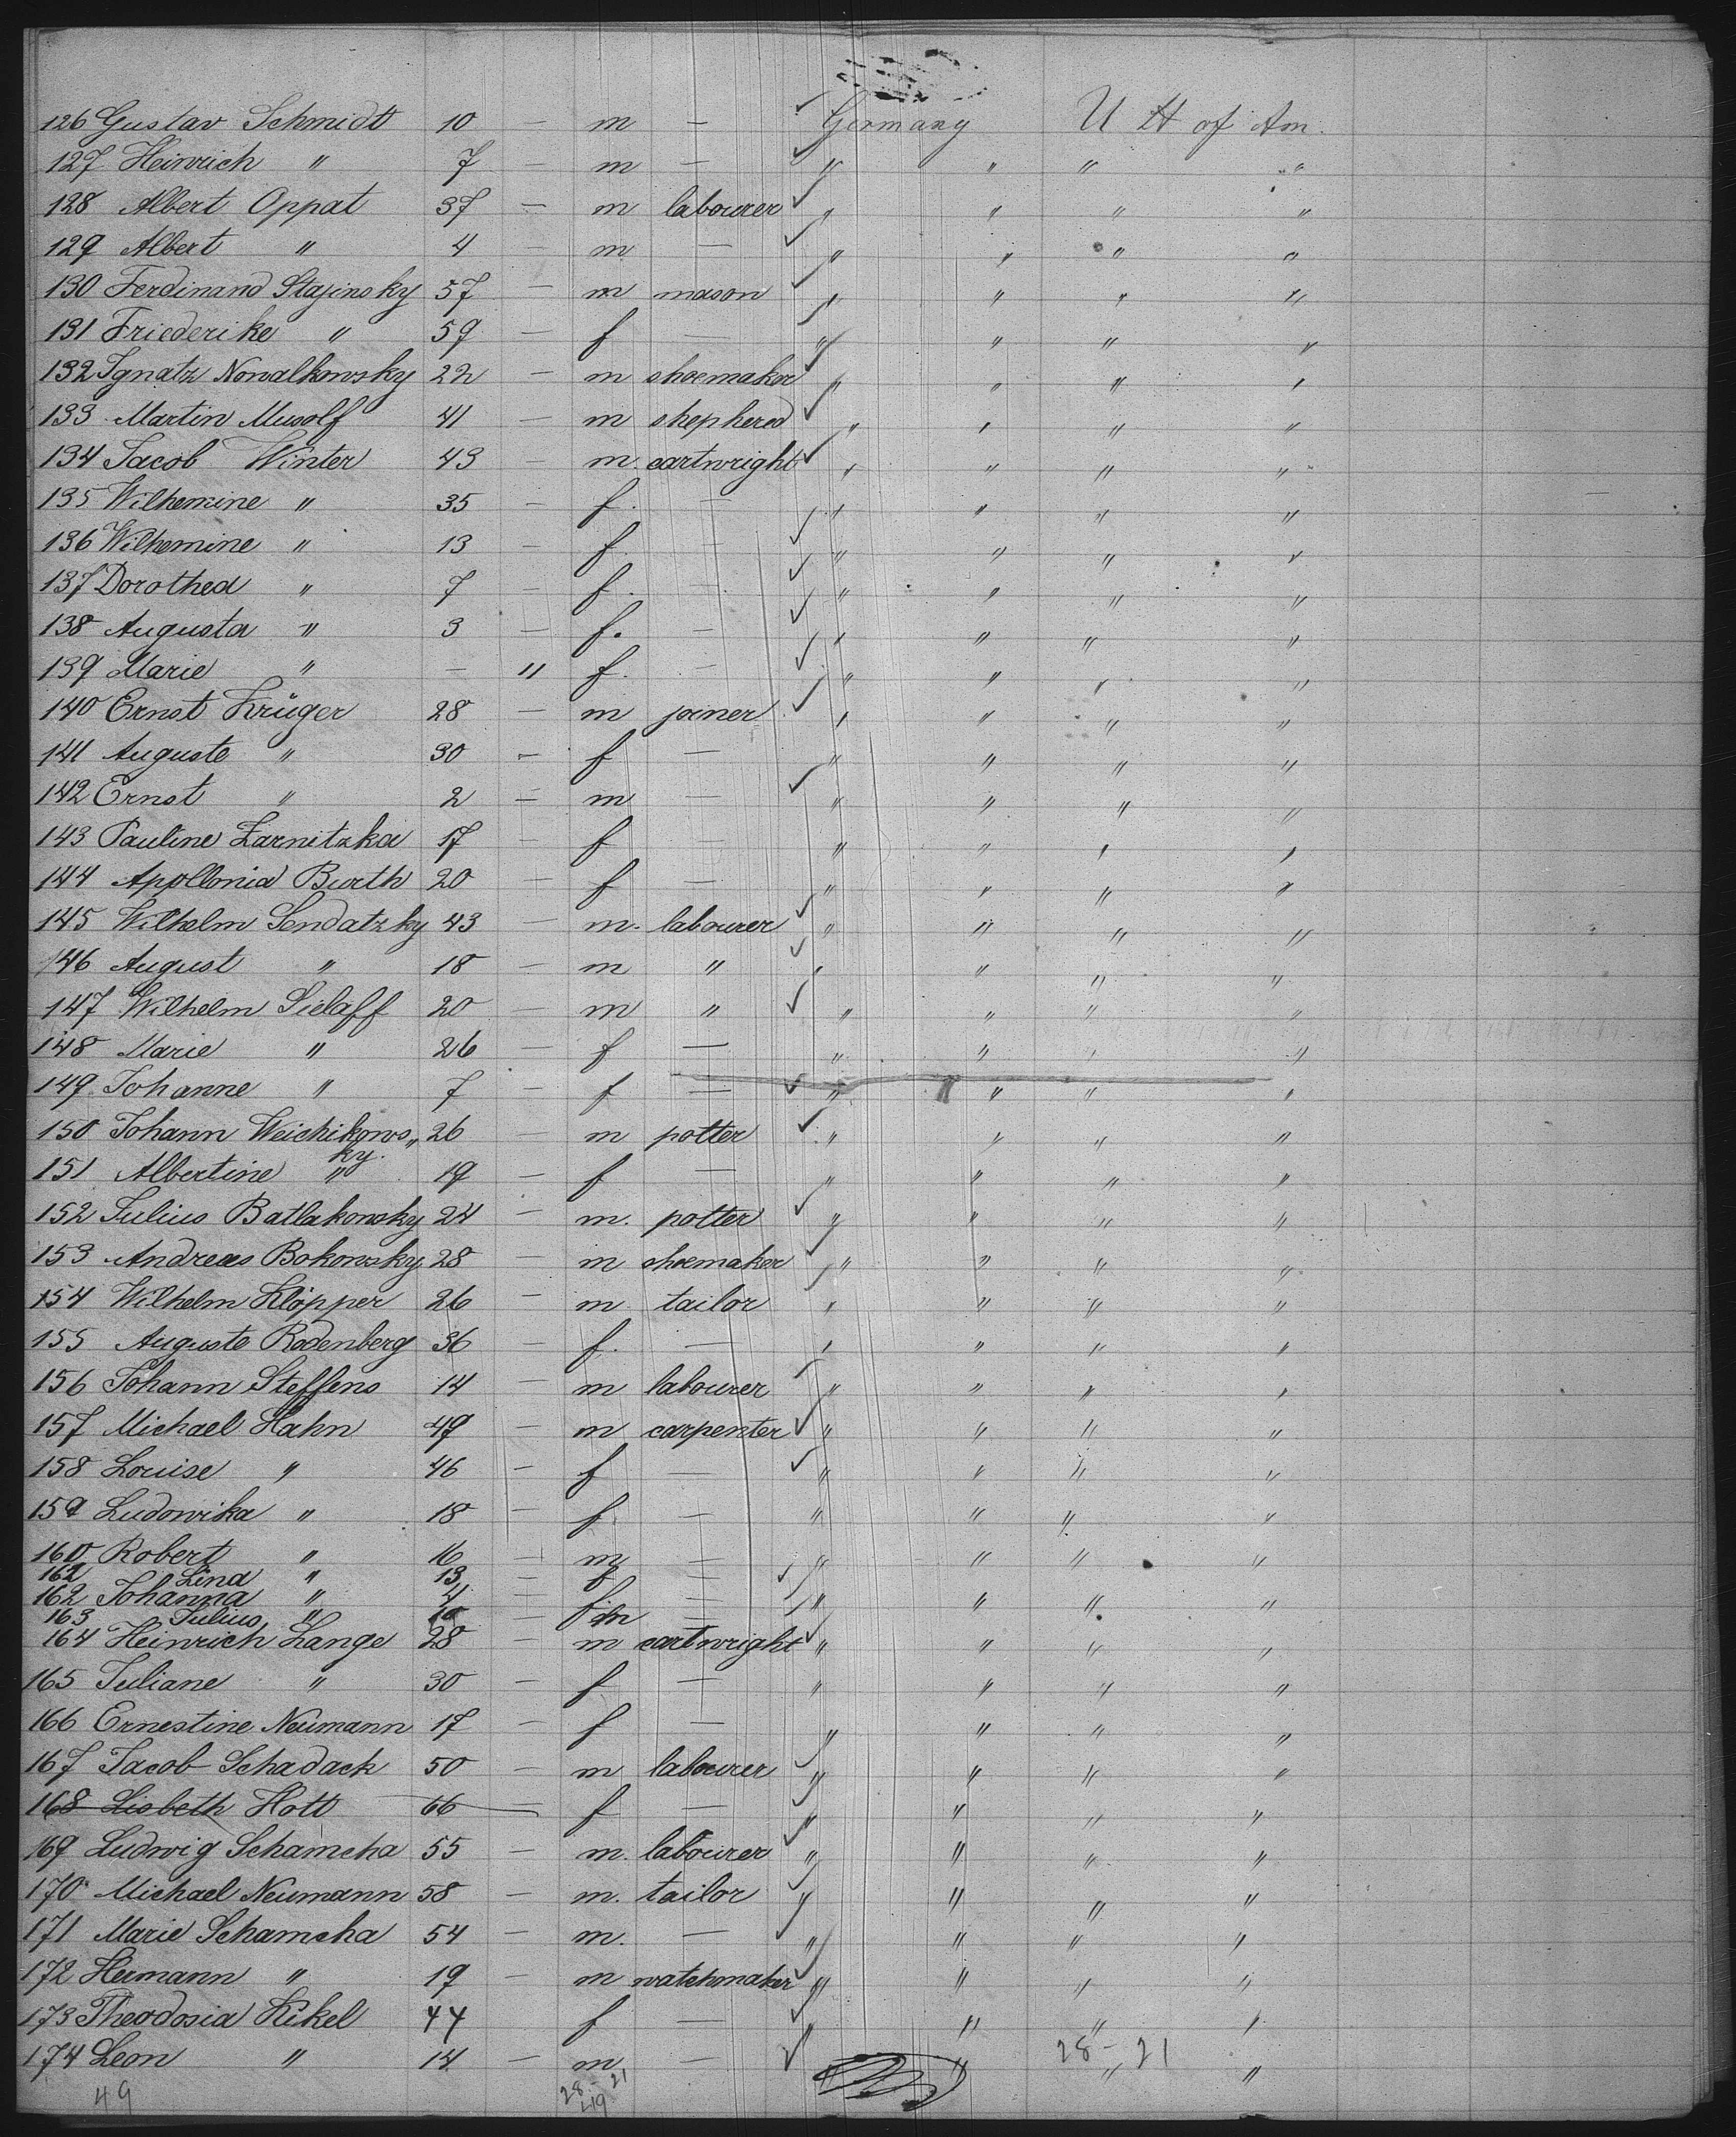 126 Gustav Schmidt 10 — m — Germany U St of Am.
127 Heinrich " 7 — m — " " " "
128 Albert Oppat 37 — m labourer " " " "
129 Albert " 4 — m — " " " "
130 Ferdinand Stajinsky 57 — m mason " " " "
131 Friederike " 59 — f — " " " "
132 Ignatz Nowalkowsky 22 — m shoemaker " " " "
133 Martin Musolf 41 — m shepherd " " " "
134 Jacob Winter 43 m. cartwright " " " "
135 Wilhemine " 35 — f. — " " " "
136 Wilhemine " 13 — f. — " " " "
137 Dorothea " 7 — f. — " " " "
138 Augusta " 3 — f. — " " " "
139 Marie " — 11 f. — " " " "
140 Ernst Krüger 28 — m joiner " " " "
141 Auguste " 30 — f — " " " "
142 Ernst " 2 — m — " " " "
143 Pauline Zarnitzka 17 — f — " " " "
144 Apollonia Burth 20 — f — " " " "
145 Wilhelm Sendatzky 43 — m. labourer " " " "
146 August " 18 — m " " " " "
147 Wilhelm Sielaff 20 — m " " " " "
148 Marie " 26 — f — " " " "
149 Johanne " 7 — f — " " " "
150 Johann Weichikows„ 26 — m potter " " " "
ky.
151 Albertine " 19 — f — " " " "
152 Julius Batlakowsky 24 — m. potter " " " "
153 Andreas Bokowsky 28 — m shoemaker " " " "
154 Wilhelm Klöpper 26 — m tailor " " " "
155 Auguste Rodenberg 36 — f. — " " " "
156 Johann Steffens 14 — m labourer " " " "
157 Michael Hahn 49 — m carpenter " " " "
158 Louise " 46 — f — " " " "
159 Ludowika " 18 — f. — " " " "
160 Robert " 16 — m — " " " "
162 Lina " 13 — f —
162 Johanna " 4 — f — " " " "
163 Julius " 10 — m —
164 Heinrich Lange 28 — m cartwright " " " "
165 Juliane " 30 — f — " " " "
166 Ernestine Neumann 17 — f — " " " "
167 Jacob Schadack 50 — m labourer " " " "
168 Lisbeth Hott 66 — f — " " " "
169 Ludwig Schamcha 55 — m. labourer " " " "
170 Michael Neumann 58 — m. tailor " " " "
171 Marie Schamcha 54 — m. — " " " "
172 Hermann " 19 — m watchmaker " " " "
173 Theodosia Kikel 44 f — " " " "
174 Leon " 14 — m — " " " "
28 – 21
49 28 – 21
49